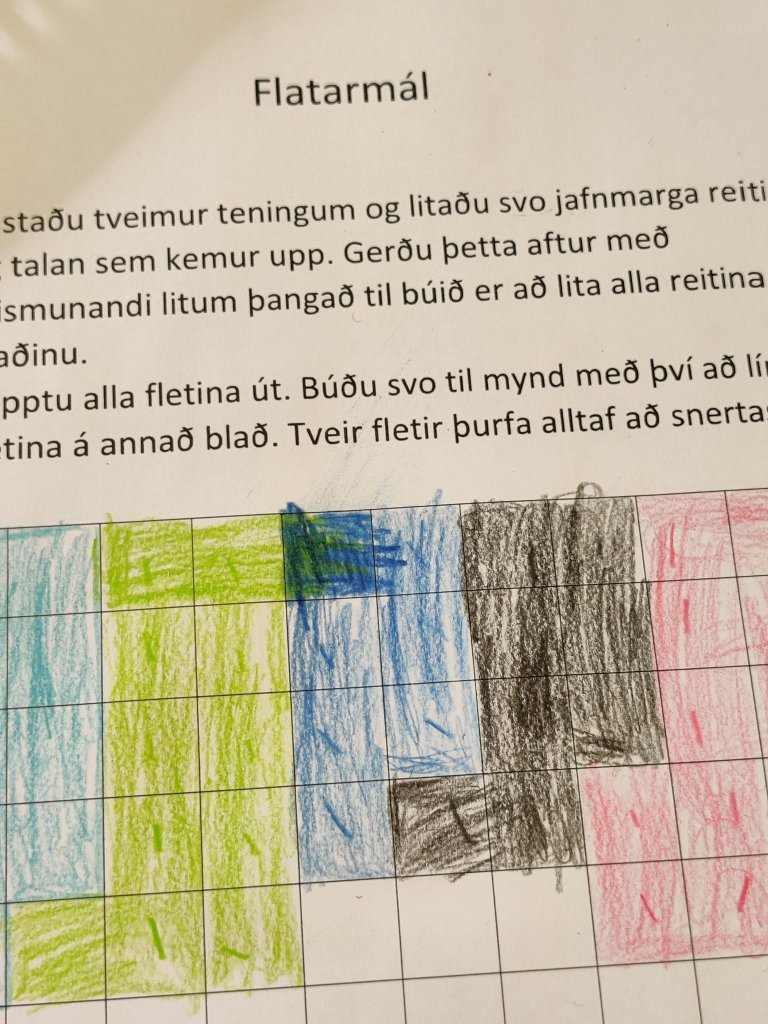 Flatarmál
staðu tveimur teningum og litaðu svo jafnmarga reiti
talan sem kemur upp. Gerðu þetta aftur með
ismunandi litum þangað til búið er að lita alla reitina
aðinu.
pptu alla fletina út. Búðu svo til mynd með því að lí
tina á annað blað. Tveir fletir þurfa alltaf að snerta